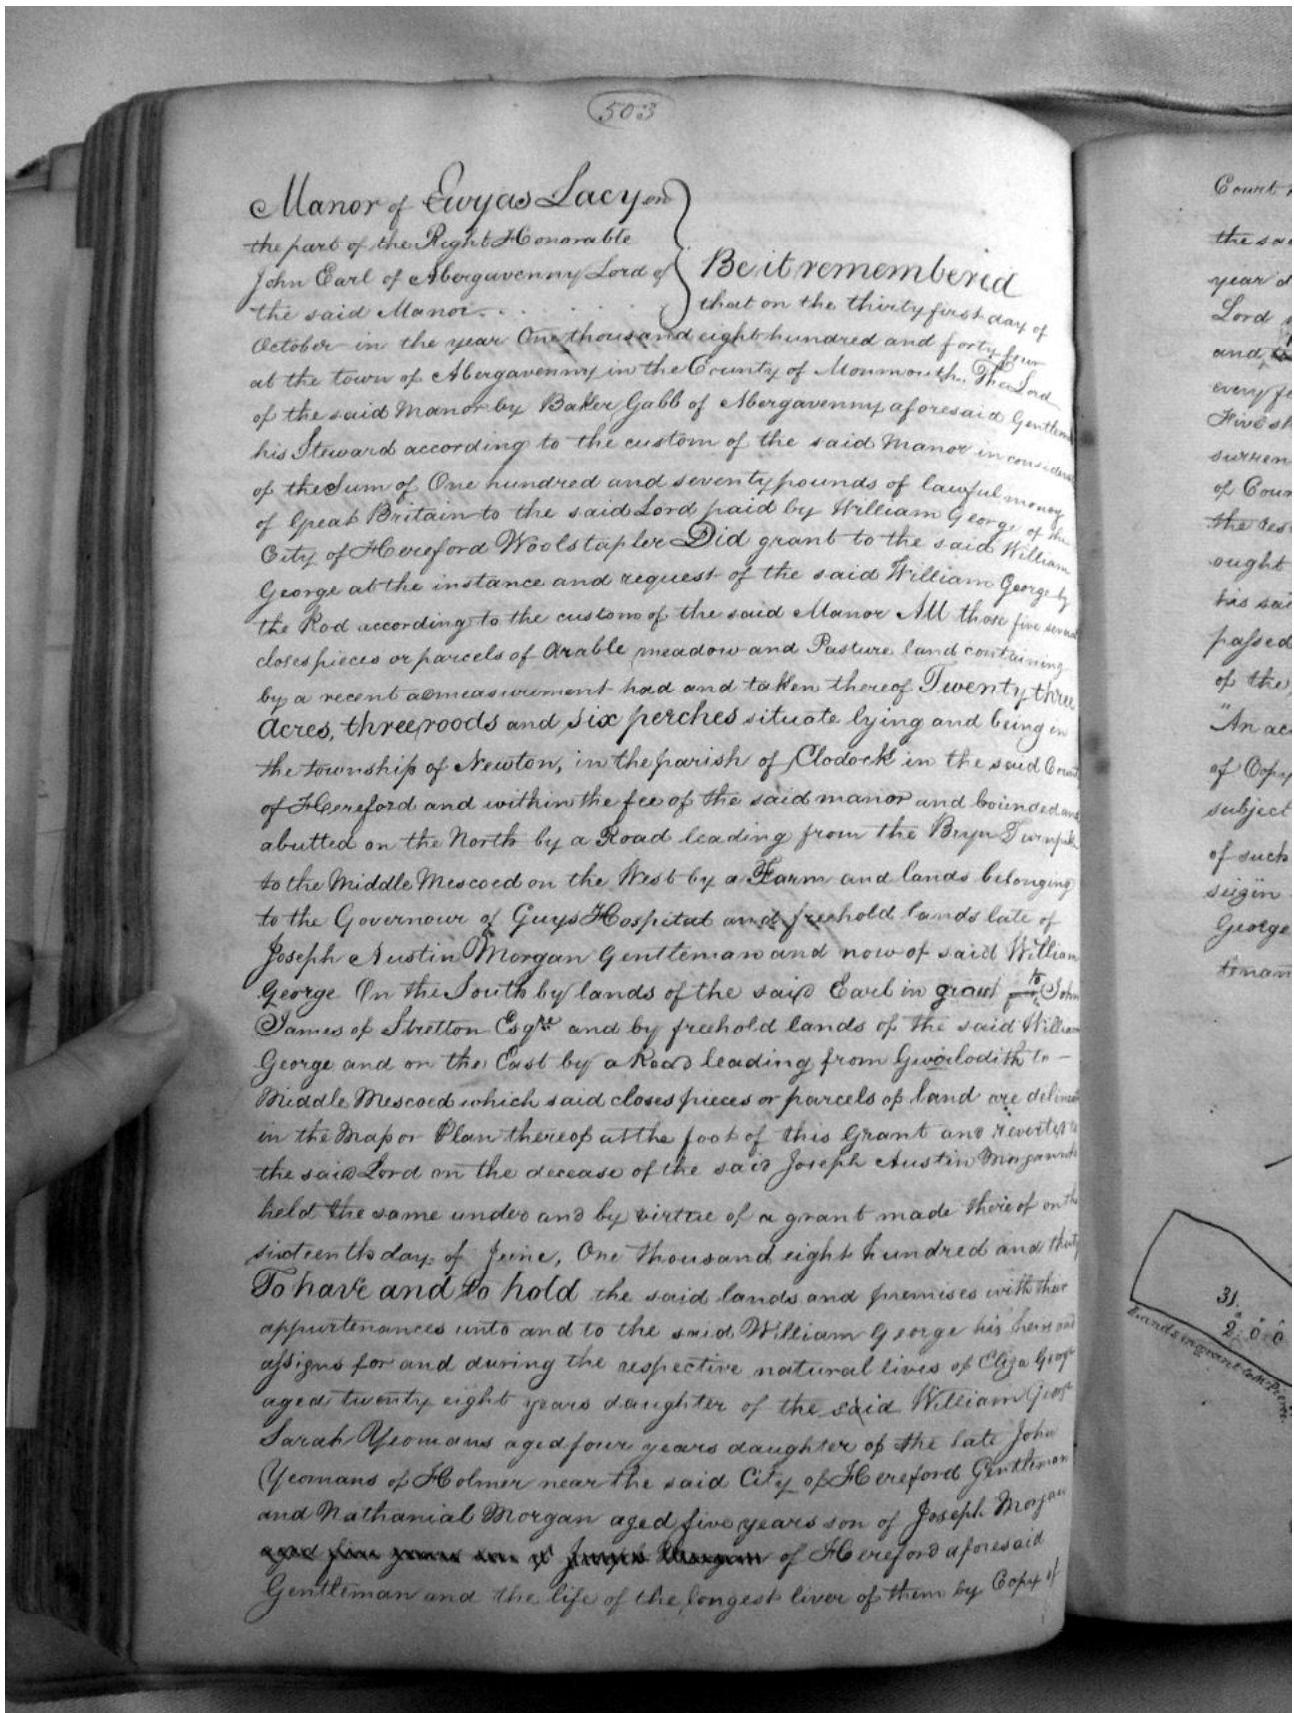 503
Manor of Ewyas Lacy on
the part of the Right Honorable
John Earl of Abergavenny Lord of
the said Manor.
Be it remembered
that on the thirty first day of
October in the year One thousand eight hundred and forty four
at the town of Abergavenny in the County of Monmouth The Lord
of the said Manor by Baker Gabb of Abergavenny aforesaid Gentleman
his Steward according to the custom of the said Manor in
of the Sum of One hundred and seventy pounds of lawful money
of Great Britain to the said Lord paid by William George of the
City of Hereford Woolstapler Did grant to the said William
George at the instance and request of the said William George by
the Rod according to the custom of the said Manor All those five several
closes pieces or parcels of Arable meadow and Pasture land containing
by a recent admeasurement had and taken thereof Twenty three
Acres, three roods and six perches situate lying and being in
the township of Newton, in the parish of Clodock in the said County
of Hereford and within the fee of the said manor and bounded and
abutted on the North by a Road leading from the Bryn Turnpike
to the Middle Mescoed on the West by a Farm and lands belonging
to the Governour of Guys Hospital and freehold lands late of
Joseph Austin Morgan Gentleman and now of said William
George On the South by lands of the said Earl in grant to John
James of Stretton Esqre and by freehold lands of the said William
George and on the East by a Road leading from Gwoilodith to —
Middle Mescoed which said closes pieces or parcels of land are
in the Map or Plan thereof at the foot of this Grant and reverted to
the said Lord on the decease of the said Joseph Austin Morgan who
held the same under and by virtue of a grant made thereof on the
sixteenth day of June, One thousand eight hundred and thirty
To have and to hold the said lands and premises with their
appurtenances unto and to the said William George his heirs and
assigns for and during the respective natural lives of Eliza George
aged twenty eight years daughter of the said William George
Sarah Yeomans aged four years daughter of the late John
Yeomans of Holmer near the said City of Hereford Gentleman
and Nathanial Morgan aged five years son of Joseph Morgan
aged five years son of Joseph Morgan of Hereford aforesaid
Gentleman and the life of the longest liver of them by Copy of
Court
the sa
year
Lord
and
every
Five sh
surren
of Cour
the
ought
his sai
passed
of the
"An ac
of Copy
subject
of such
George
tenan
31.
2. 0. 0
Lands in grant to Mr